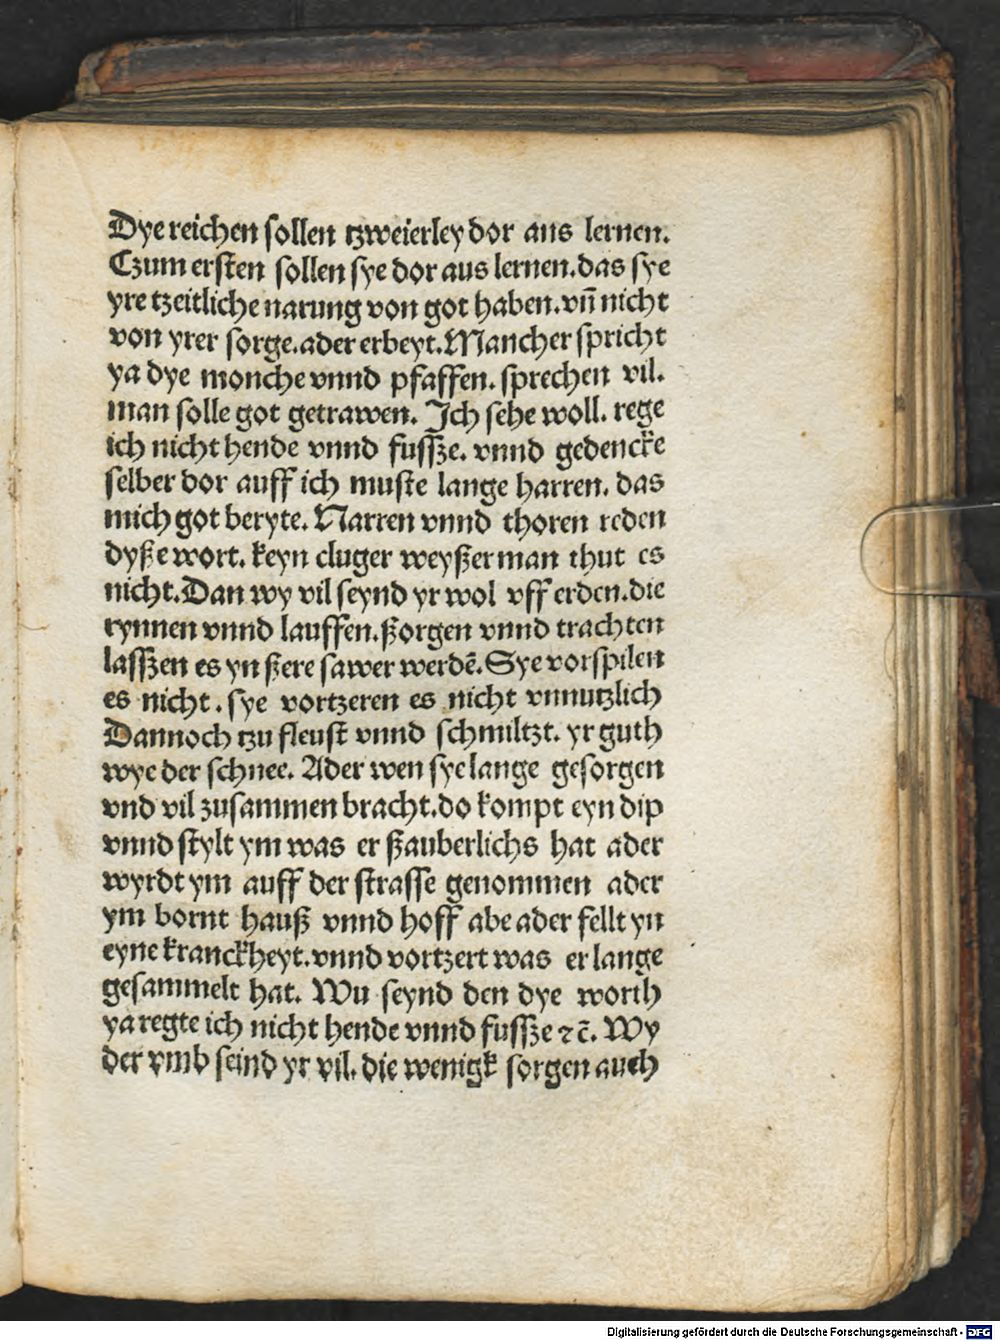 Dye reichen ſollen tzweierley dor aus lernen.
Czum erſten ſollen ſye dor aus lernen. das ſye
yre tzeitliche narung von got haben. vn̄ nicht
von yrer ſorge. ader erbeyt. Mancher ſpricht
ya dye monche vnnd pfaffen. ſprechen vil.
man ſolle got getrawen. Ich ſehe woll. rege
ich nicht hende vnnd fuſſze. vnnd gedencke
ſelber dor auff ich muſte lange harren. das
mich got beryte. Narren vnnd thoren reden
dyße wort. keyn cluger weyßer man thut es
nicht. Dan wy vil ſeynd yr wol vff erden. die
rynnen vnnd lauffen. ßorgen vnnd trachten
laſſzen es yn ßere ſawer werdē. Sye vorſpilen
es nicht. ſye vortzeren es nicht vnnutzlich
Dannoch tzu fleuſt vnnd ſchmiltzt. yr guth
wye der ſchnee. Ader wen ſye lange geſorgen
vnd vil zuſammen bracht. do kompt eyn dip
vnnd ſtylt ym was er ßauberlichs hat ader
wyrdt ym auff der ſtraſſe genommen ader
ym bornt hauß vnnd hoff abe ader fellt yn
eyne kranckheyt. vnnd vortzert was er lange
geſammelt hat. Wu ſeynd den dye worth
ya regte ich nicht hende vnnd fuſſze ⁊c̄. Wy
der vmb ſeind yr vil. die wenigk ſorgen auch
Digitalisierung gefördert durch die Deutsche Forschungsgemeinschaft - DFG